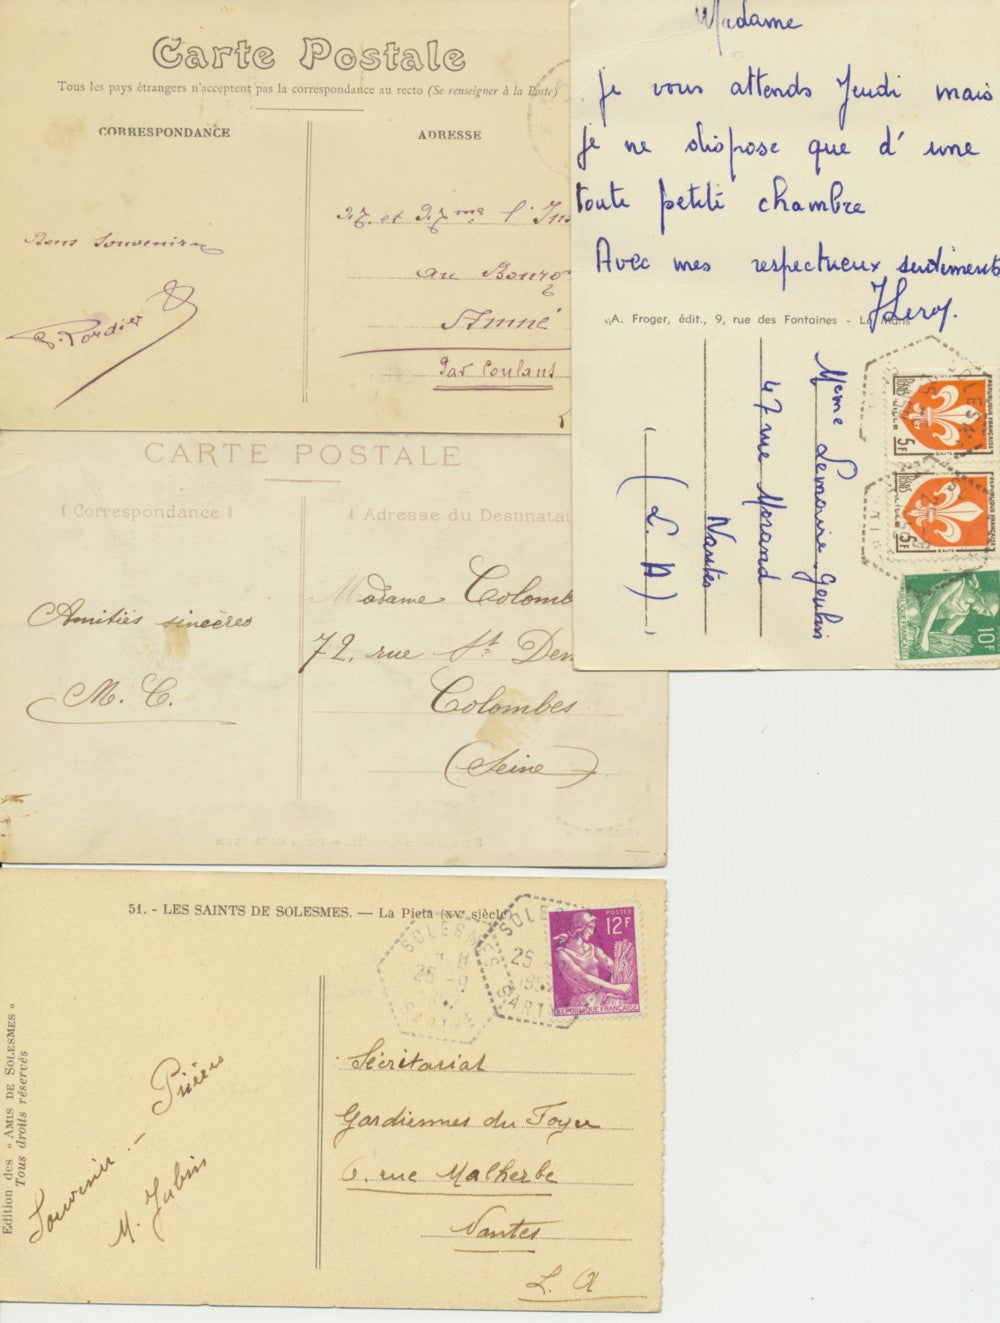 Carte Postale
Tous les pays étrangers n'acceptent pas la correspondance au recto (Se renseigner à la Poste)
CORRESPONDANCE
ADRESSE
Bons Souvenirs
au
Amné
Par Coulans
Madame
je vous attends Jeudi mais
je ne dispose que d'une
toute petite chambre
Avec mes respectueux sentiments
J Leroy
A. Froger, édit., 9, rue des Fontaines - Le Mans
Mme Lemaire-Goubin
47 rue Morand
Nantes
(L. A)
5F
REPUBLIQUE FRANÇAISE
5F
REPUBLIQUE FRANÇAISE
10F
CARTE POSTALE
(Correspondance)
(Adresse du Destinatai
Amitiés sincères
M. C.
Madame Colomb
72, rue St Den
Colombes
(Seine)
51. - LES SAINTS DE SOLESMES. — La Pieta (XVe siècle)
SOLESM
25
SARTHE
SOLES
25
SARTH
POSTES
12F
REPUBLIQUE FRANÇAISE
Edition des « AMIS DE SOLESMES »
Tous droits réservés
Souvenir - Prières
M.
Sécrétariat
Gardiennes du Foyer
6. rue Malherbe
Nantes
L. A